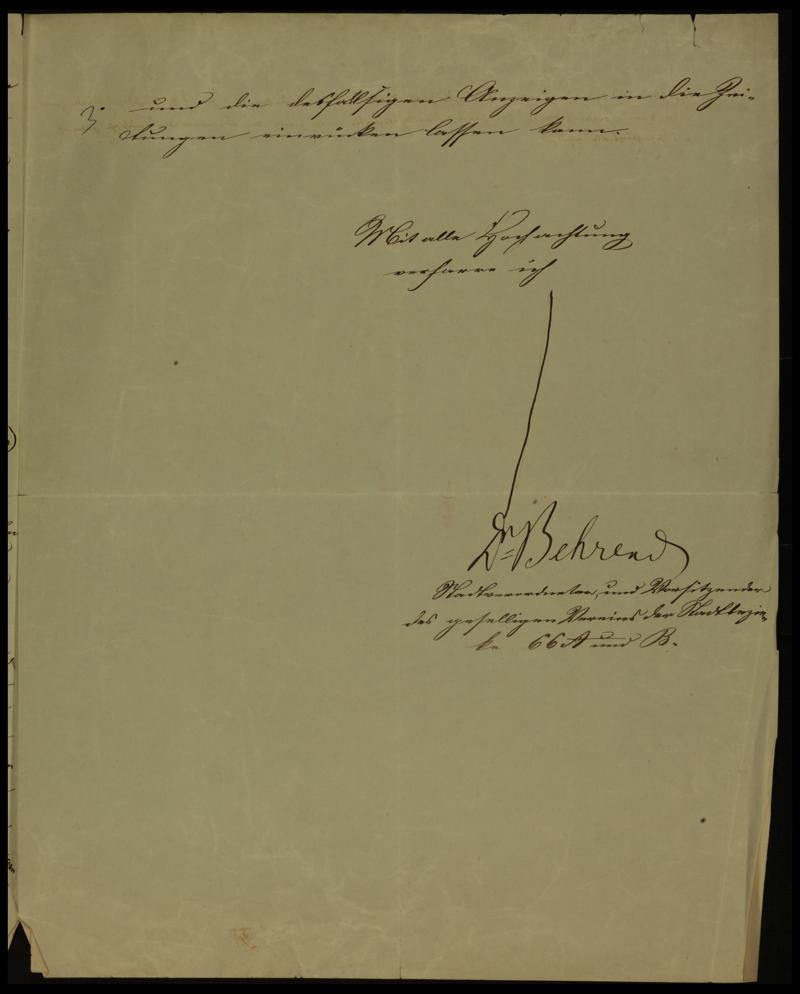 3. und die desfallsigen Anzeigen in die Zei-
tungen einrücken lassen kann.
Mit alle Hochachtung
verharre ich
Dr Behrend
Stadtverordneter, und Vorsitzender
des geselligen Vereins der Stadtbezir-
ke 66 A und B.